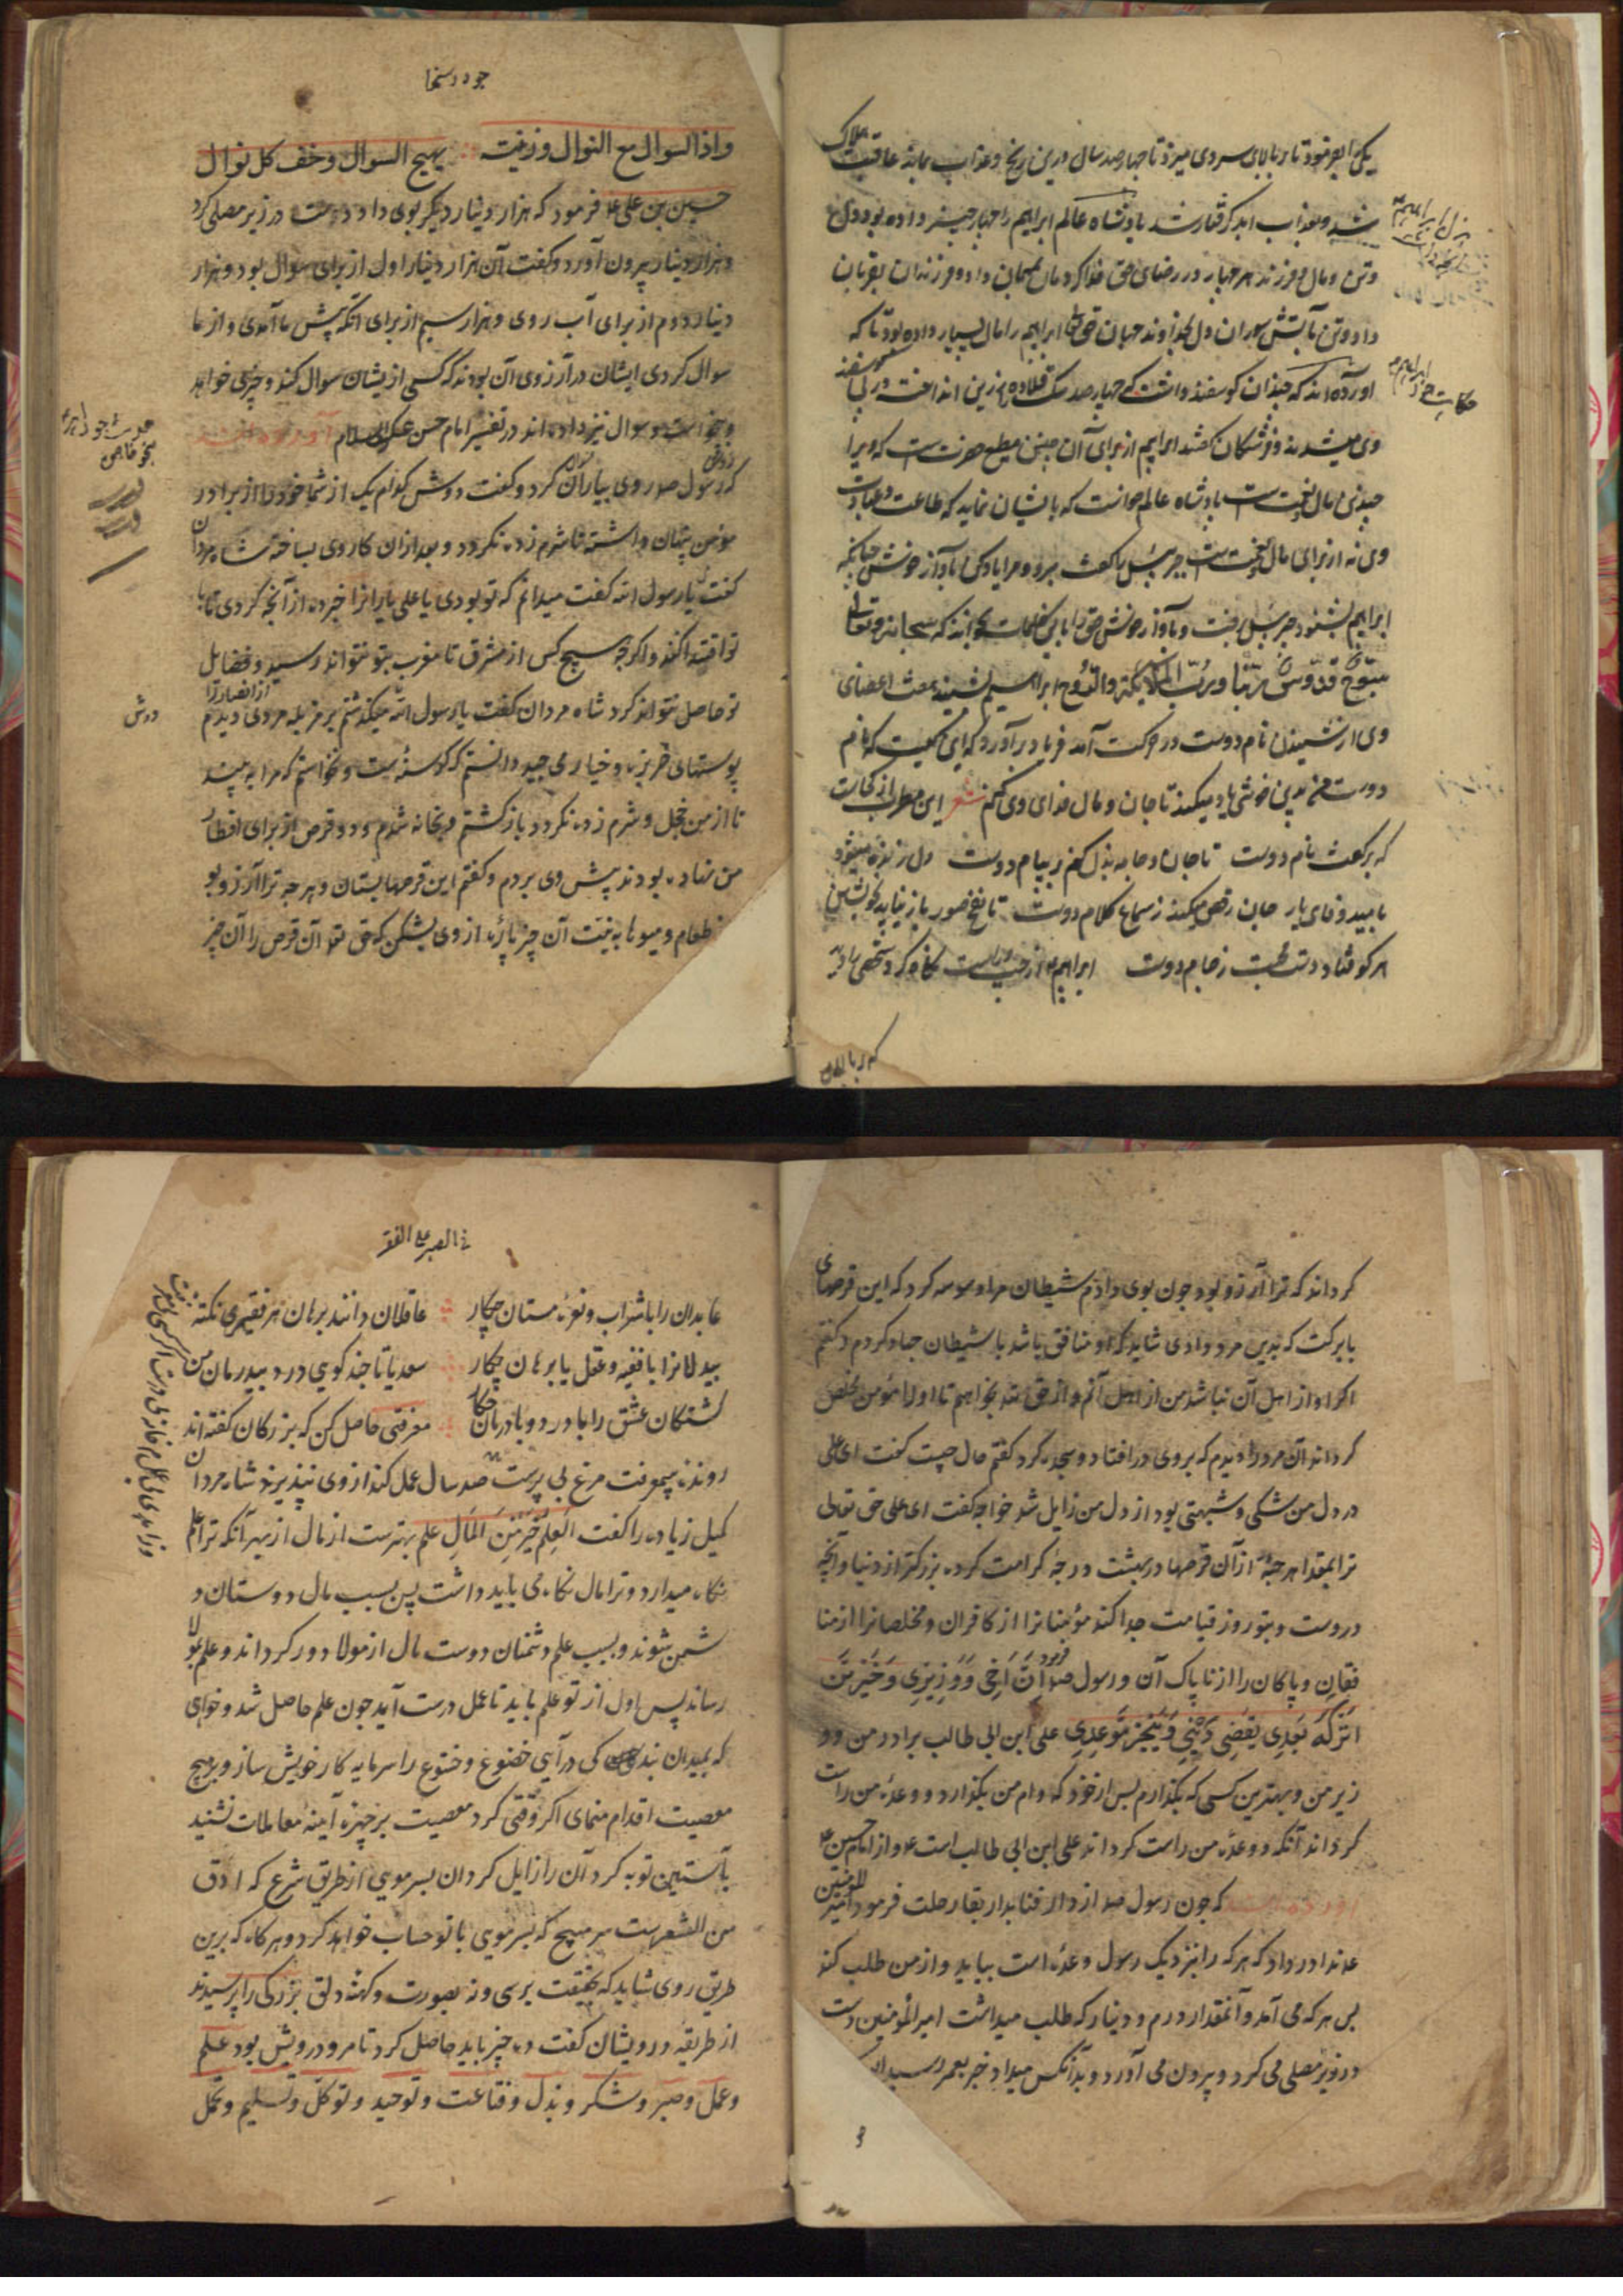 یکی را بفرمود تا بر بالای سر وی میزد تا چهار صد سال درین رنج و عذاب بماند عاقبت هلاک
شد و بعذاب ابد گرفتار شد پادشاه عالم ابراهیم را چهار چیز داده بود دل
و تن و مال و فرزند هر چهار در رضای حق فدا کرد مال بمهمان داد و فرزندان بقربان
داد و تن بآتش سوزان دل بخداوند جهان حق تعالی ابراهیم را مال بسیار داده بود تا که
آورده اند که چندان کوسفند داشت که چهار صد سک قلاده زرین انداخته در پی کوسفند
وی میشدند و فرشتکان گفتند ابراهیم از برای آن چنین مطیع حضرتست که ویرا
چندین مال نعمتست پادشاه عالم خواست که بایشان نماید که طاعت و عبادت
وی نه از برای مال نعمتست جبرئیل را گفت برو و مرا یاد کن بآواز خوش چنانکه
ابراهیم بشنود جبرئیل برفت و بآواز خوش حق را باین کلمات بخواند که سبحانه و تعالی
سبوح قدوس ربنا و رب الملائکة والروح ابراهیم بشنید همه اعضای
وی از شنیدن نام دوست در حرکت آمد فریاد برآورد که این کیست که نام
دوست من بدین خوشی یاد میکند تا جان و مال فدای وی کنم شعر این مطرب از کجاست
که برگفت نام دوست تا جان و جامه بذل کنم بر پیام دوست دل زنده میشود
بامید وفای یار جان رقص میکند ز سماع کلام دوست تا نفخ صور باز نیاید بخویشتن
هر کو فتاد مست محبت ز جام دوست ابراهیم از چپ و راست نگاه کرد شخصی را دید
حکایت ابراهیم
جود و سخا
واذا السوال مع النوال وزنته یهیج السوال و خف کل نوال
حسین بن علی ع فرمود که هزار دینار دیگر بوی داد و دست در زیر مصلی کرد
و هزار دینار بیرون آورد و گفت آن هزار دینار اول از برای سوال بود و هزار
دینار دوم از برای آب روی و هزار سیم از برای آنکه پیش ما آمدی و از ما
سوال کردی ایشان در آرزوی آن بودند که کسی از یشان سوال کند و چیزی خواهد
و بی سوال نیز داده اند در تفسیر امام حسن عسکری علیه السلام آورده اند
که رسول ص روزی روی بیاران کرد و گفت دوش کدام یک از شما خود را از برادر
مؤمن پنهان داشته تا شرم زده نکردد و بعد از آن کار وی بساخته شاه مردان
گفت یا رسول الله گفت میدانم که تو بودی یا علی یارانرا خبر ده از آنچه کردی تا با
تو اقتدا کنند و اگرچه هیچ کس از مشرق تا مغرب بتو نتواند رسید و فضایل
تو حاصل نتواند کرد شاه مردان گفت یا رسول الله میکذشتم بر مزبله مردی دیدم از انصار را
پوستهای خربزه و خیار می چید دانستم که گرسنه است و نخواستم که مرا به بیند
تا از من خجل و شرم زده نکردد باز کشتم و بخانه شدم و دو قرص از برای افطار
من نهاده بودند پیش وی بردم و گفتم این قرصها بستان و هر چه ترا آرزو بو
طعام و میوها به نیت آن چیز پاره از وی بشکن که حق تع آن قرص را آن چیز
گرداند که ترا آرزو بود چون بوی دادم شیطان مرا وسوسه کرد که این قرصهای
با برکت که بدین مرد دادی شاید که او منافق باشد با شیطان جهاد کردم و گفتم
اگر او از اهل آن نباشد من از اهل آنم و از حق تع بخواهم تا او را مؤمن مخلص
گرداند آن مرد را دیدم که بروی در افتاد و سجده کرد گفتم حال چیست گفت ای علی
در دل من شکی و شبهتی بود از دل من زایل شد خواجه گفت ای علی حق تعالی
ترا بمقدار هر حبه از آن قرصها در بهشت درجه کرامت کرده بزرگتر از دنیا و آنچه
دروست و بتو روز قیامت جدا کند مؤمنانرا از کافران و مخلصانرا از منا
فقان و پاکان را از ناپاک آن و رسول ص فرمود ان اخی و وزیری و خیر من
اترکه بعدی یقضی دینی و ینجز موعدی علی ابن ابی طالب برادر من و و
زیر من و بهترین کسی که بگذارم پس از خود که وام من بگذارد و وعده من راست
گرداند آنکه وعده من راست گرداند علی ابن ابی طالب است ع و از امام حسین ع
آورده است که چون رسول ص از دار فنا بدار بقا رحلت فرمود امیر المؤمنین
ع ندا در داد که هر که را بنزدیک رسول وعده است بیاید و از من طلب کند
پس هر که می آمد و آنمقدار درم و دینار که طلب میداشت امیر المؤمنین دست
در زیر مصلی می کرد و بیرون می آورد و بدانکس میداد خبر بعمر رسید
فی الصبر علی الفقر
عابدان را با شراب و نعره مستان چکار عاقلان دانند برهان هر فقیهی نکته
بیدلانرا با فقیه و عقل یا برهان چکار سعدیا تا چند کویی درد بیدرمان من
کشتکان عشق را با درد و با درمان چکار معرفتی حاصل کن که بزرکان گفته اند
رونده بیمعرفت مرغ بی پرست صد سال عمل کند از وی نپذیرند شاه مردان
کمیل زیاد را گفت العلم خیر من المال علم بهترست از مال از بهر آنکه ترا علم
نگاه میدارد و ترا مال نگاه می باید داشت پس بسبب مال دوستان د
شمن شوند و بسبب علم دشمنان دوست مال از مولا دور گرداند و علم بمولا
رساند پس اول از تو علم باید تا عمل درست آید چون علم حاصل شد و خواهی
که بمیدان بندگی در آیی خضوع و خشوع را سرمایه کار خویش ساز و بر هیچ
معصیت اقدام منمای اگر وقتی گرد معصیت بر چهره آینه معاملات نشیند
بآستین توبه گرد آن را زایل گردان بسر مویی از طریق شرع که ادق
من الشعرست سر مپیچ که بسر مویی با تو حساب خواهد کرد و هر گاه که برین
طریق روی شاید که بحقیقت برسی و نه بصورت و کهنه دلق بزرگی را پرسیدند
از طریقه درویشان گفت ده چیز باید حاصل کرد تا مرد درویش بود علم
و عمل و صبر و شکر و بذل و قناعت و توحید و توکل و تسلیم و تحمل